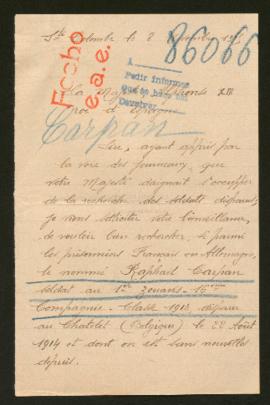 Ste Colombe le 2
86066
Fecho
e.a.e.
A
Pedir informes
Devolver
Sa Majesté Alphonse XIII
roi d'Espagne
Carpan
Sire, ayant appris par
la voie des journaux, que
votre Majesté daignait s'occuper
de la recherche des soldats disparus,
je viens solliciter votre bienveillance,
de vouloir bien rechercher parmi
les prisonniers Français en Allemagne,
le nommé Raphaël Carpan
soldat au 1er Zouaves - 15ème
Compagnie - Classe 1913, disparu
au Chatelet (Belgique) le 22 Août
1914 et dont on est sans nouvelles
depuis.